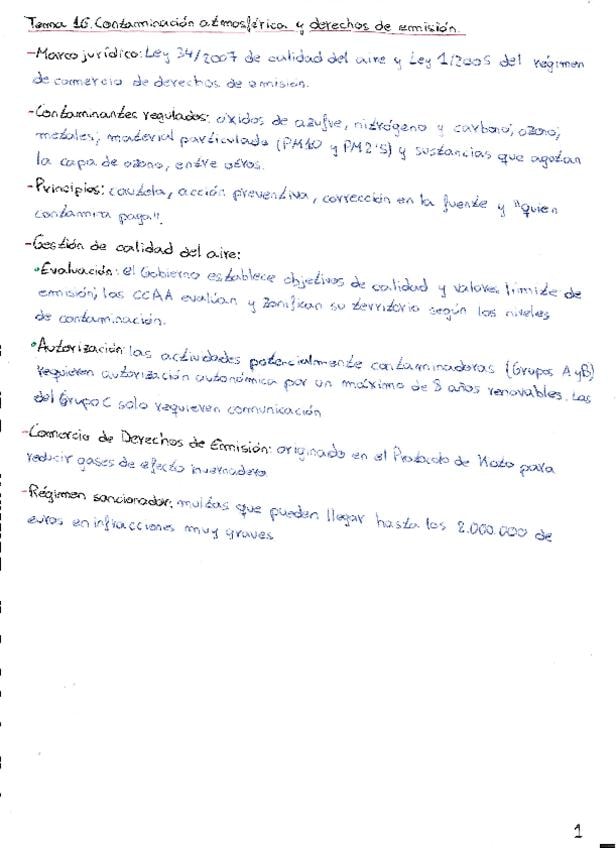 Tema 16. Contaminación atmosférica y derechos de emisión.
-Marco jurídico: Ley 34/2007 de calidad del aire y Ley 1/2005 del régimen
de comercio de derechos de emisión.
-Contaminantes regulados: óxidos de azufre, nitrógeno y carbono, ozono,
metales, material particulado (PM10 y PM2'5) y sustancias que agotan
la capa de ozono, entre otros.
-Principios: cautela, acción preventiva, corrección en la fuente y "quien
contamina paga".
-Gestión de calidad del aire:
•Evaluación: el Gobierno establece objetivos de calidad y valores límite de
emisión; las CCAA evalúan y zonifican su territorio según los niveles
de contaminación.
•Autorización: las actividades potencialmente contaminadoras (Grupos A y B)
requieren autorización autonómica por un máximo de 8 años renovables. Las
del Grupo C solo requieren comunicación
-Comercio de Derechos de Emisión: originado en el Protocolo de Kioto para
reducir gases de efecto invernadero
-Régimen sancionador: multas que pueden llegar hasta los 2.000.000 de
euros en infracciones muy graves
1